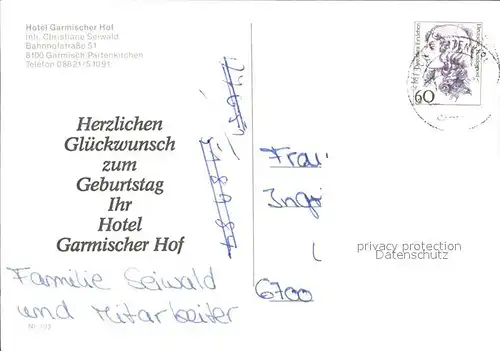 Hotel Garmischer Hof
Inh. Christiane Seiwald
Bahnhofstraße 51
8100 Garmisch-Partenkirchen
Telefon 08821/51091
60
Herzlichen
Glückwunsch
zum
Geburtstag
Ihr
Hotel
Garmischer Hof
Frau
Inge
6700
privacy protection
Datenschutz
Familie Seiwald
und Mitarbeiter
Nr. 103